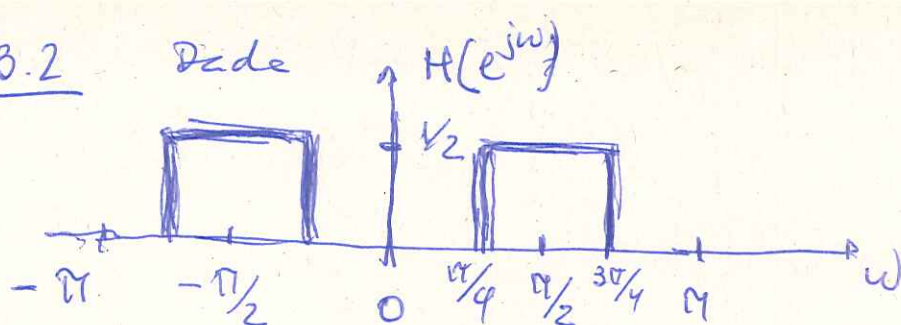 3.2 Dada H(e^{jω})
1/2
-π -π/2 0 π/4 π/2 3π/4 π ω